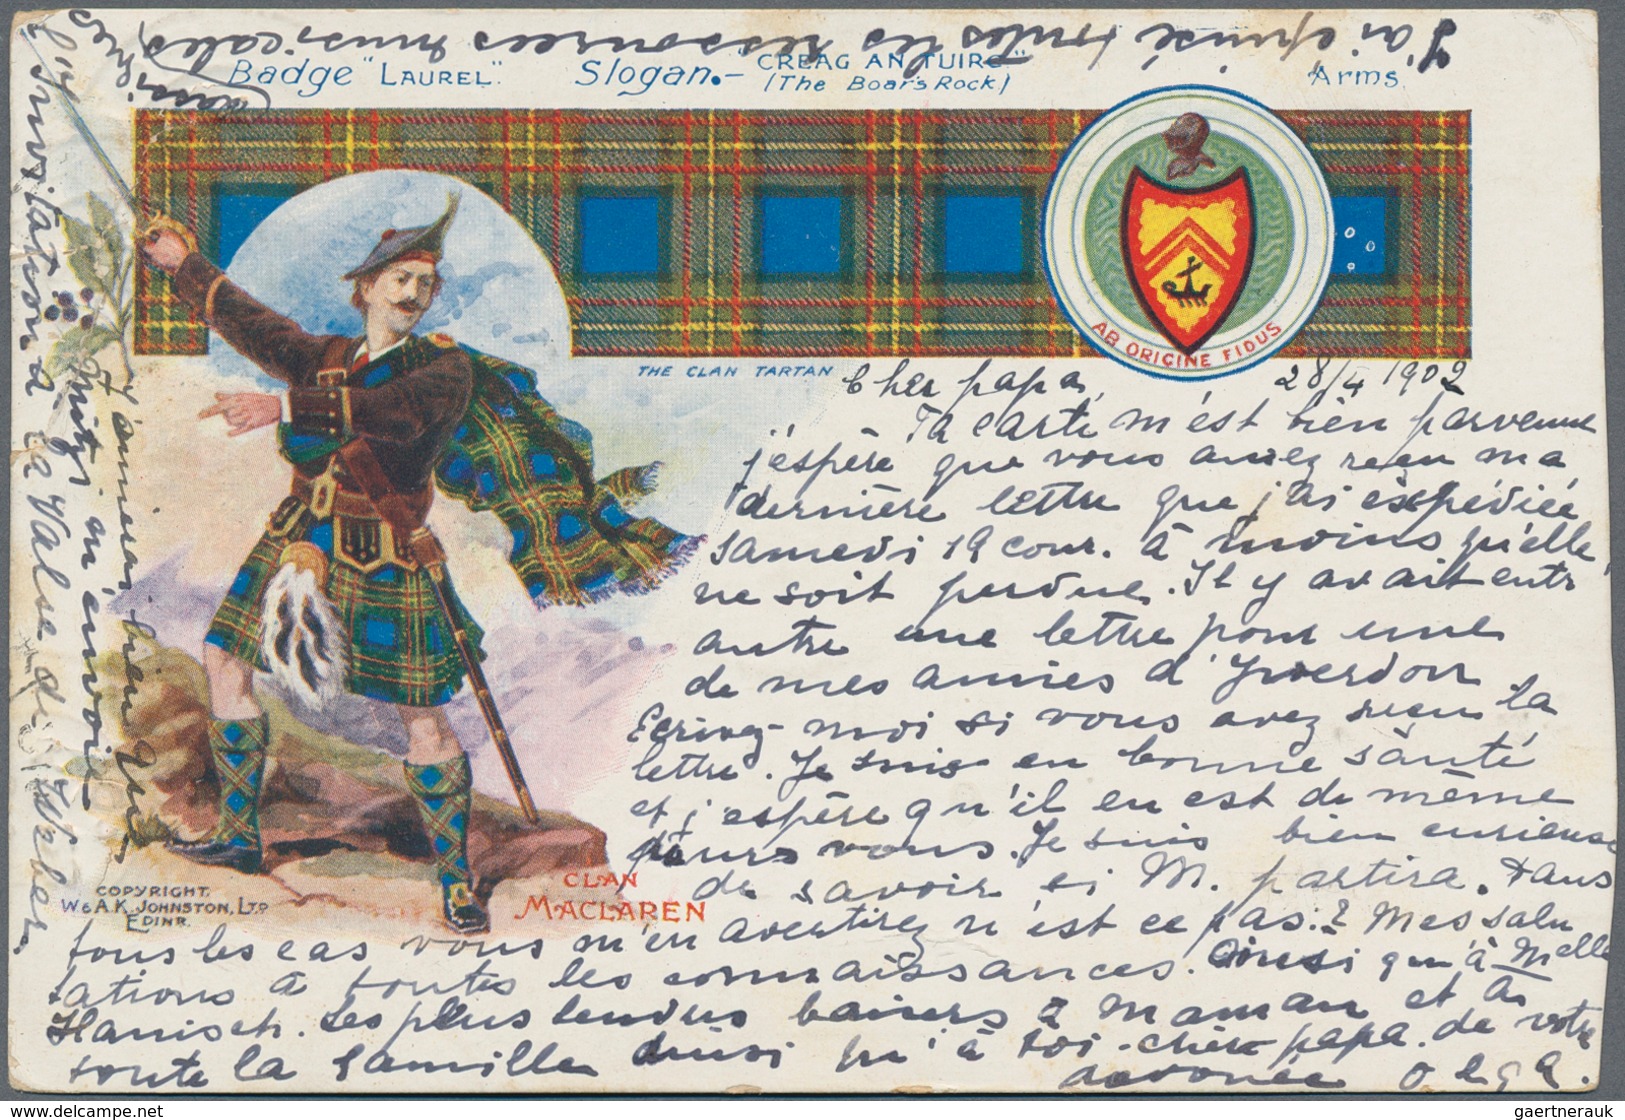 J'ai épuisé toutes les ressources musicales
Badge "LAUREL".
Slogan.- "CREAG AN TUIRC"
(The Boar's Rock)
Arms.
AB ORIGINE FIDUS
THE CLAN TARTAN
Cher papa, 28/4 1902
Ta carte m'est bien parvenue
j'espère que vous avez reçu ma
dernière lettre que j'ai expédiée
samedi 19 cour. à moins qu'elle
ne soit perdue. Il y avait entr'
autre une lettre pour une
de mes amies d'Yverdon
Ecrivez-moi si vous avez reçu la
lettre. Je suis en bonne santé
et j'espère qu'il en est de même
pour vous. Je suis bien curieuse
de savoir si M. partira. Dans
tous les cas vous m'en avertirez n'est ce pas? Mes salu
tations à toutes les connaissances. Ainsi qu'à Melle
Hanisch. Les plus tendres baisers à maman et à
toute la famille ainsi qu'à toi cher papa. de votre
dévouée Olga.
J'aimerai bien que
Mitzi m'envoie
l'Invitation à la Valse de Weber
CLAN
MACLAREN
COPYRIGHT.
W. & A.K. JOHNSTON, LTD
EDINR.
gaertnerauk@delcampe.com